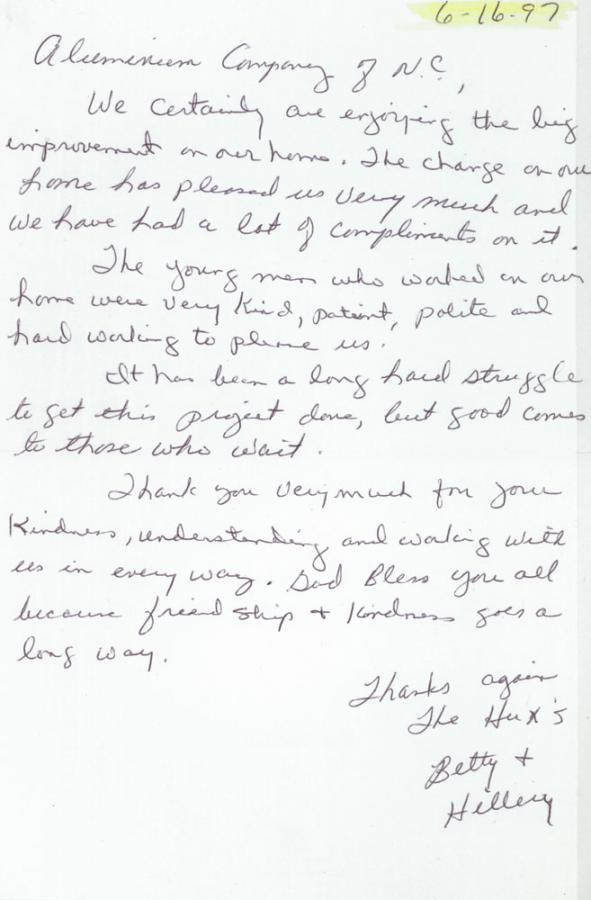 6-16-97
Aluminium Company of N.C.,
We certainly are enjoying the big
improvement on our home. The change on our
home has pleased us very much and
we have had a lot of compliments on it.
The young men who worked on our
home were very kind, patient, polite and
hard working to please us.
It has been a long hard struggle
to get this project done, but good comes
to those who wait.
Thank you very much for your
Kindness, understanding and working with
us in every way. God Bless you all
because friendship + kindness goes a
long way.
Thanks again
The Hux's
Betty +
Hillery